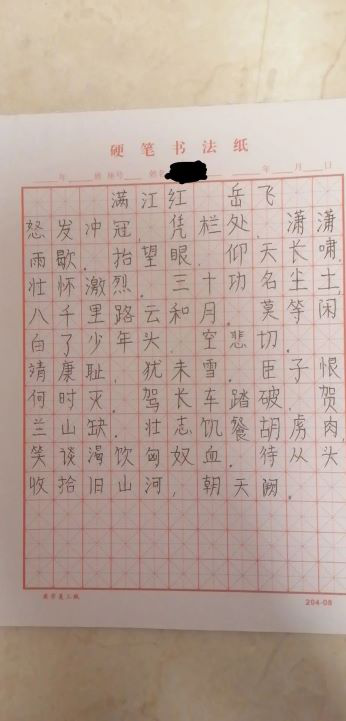 硬笔书法纸
年 班 座号 姓名 年 月 日
满江红 岳飞
怒发冲冠,凭栏处.潇潇
雨歇.抬望眼.仰天长啸.
壮怀激烈.三十功名尘土,
八千里路云和月.莫等闲
白了少年头.空悲切.
靖康耻,犹未雪.臣子恨
何时灭.驾长车踏破.贺
兰山缺.壮志饥餐胡虏肉,
笑谈渴饮匈奴血.待从头
收拾旧山河,朝天阙.
204-08